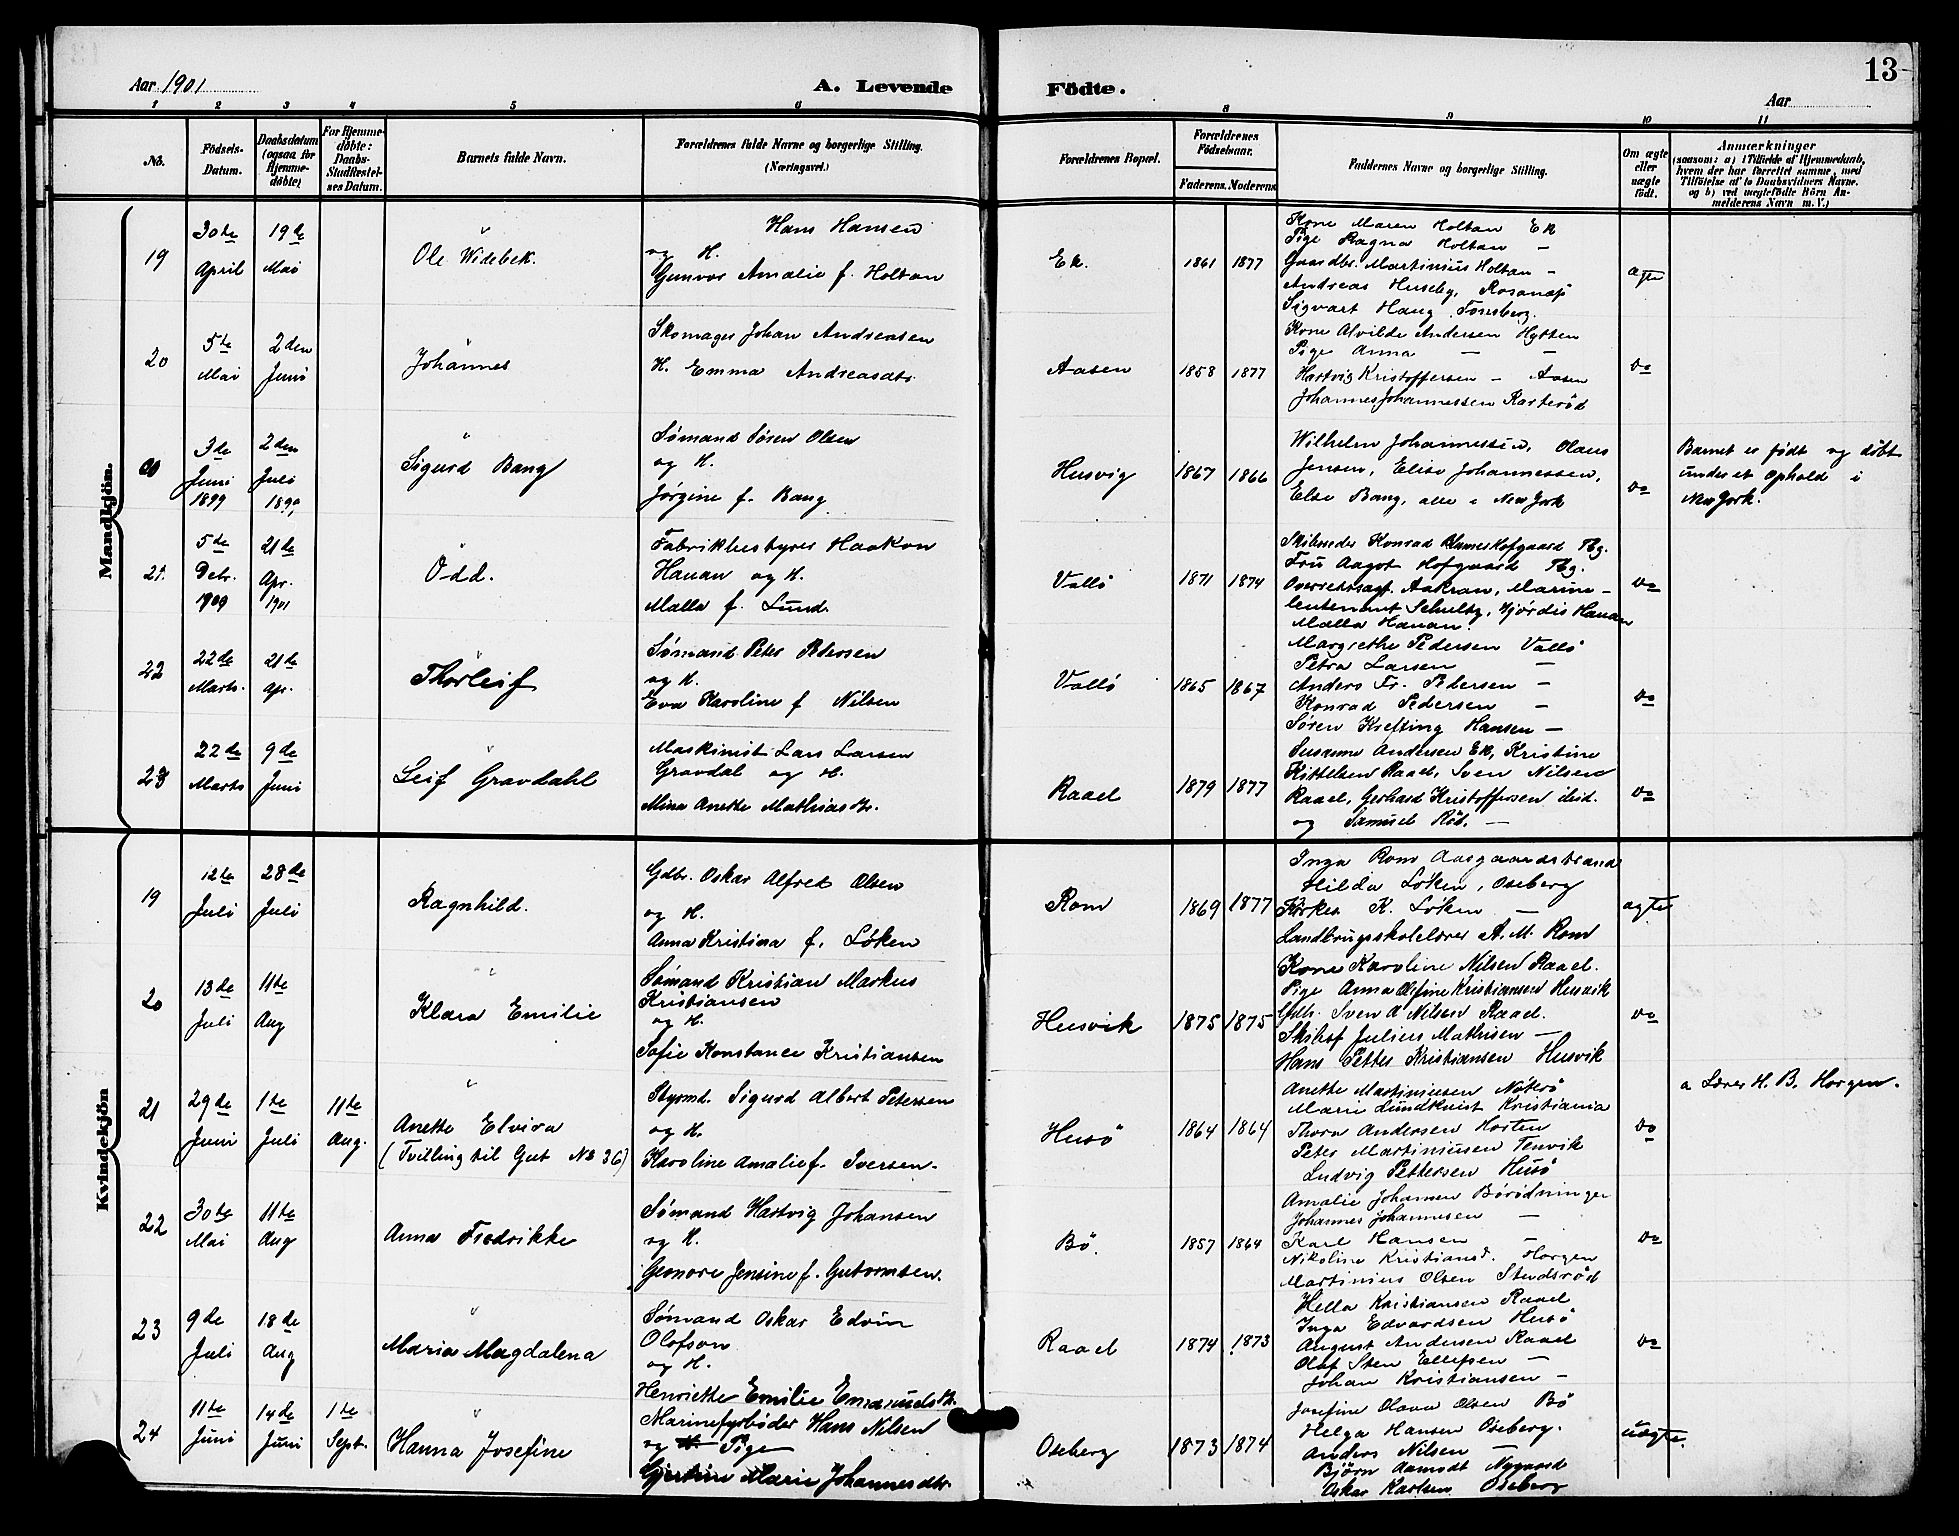 Aar 1901
A. Levende Födte.
Aar
13
1 2 3 4 5 6 8 9 10 11
No.
Födsels-Datum.
Daabsdatum (ogsaa for Hjemme-döbte)
For Hjemme-döbte: Daabs-Stadfæstel-ses Datum.
Barnets fulde Navn.
Forældrenes fulde Navne og borgerlige Stilling. (Næringsvei.)
Forældrenes Bopæl.
Forældrenes Födselsaar.
Faderens. Moderens.
Faddernes Navne og borgerlige Stilling.
Om ægte eller uægte födt.
Anmærkninger
(saasom: a) i Tilfælde af Hjemmedaab,
hvem der har forrettet samme, med
Tilföielse af to Daabsvidners Navne.
og b) ved uægtefödte Börn An-
melderens Navn m. V.)
Mandkjön.
19
30te April
19de Mai
Ole Widebek.
Hans Hansen
og H.
Gunvor Amalie f. Holtan
Ek.
1861 1877
Kone Maren Holtan Ek
Pige Ragna Holtan —
Gaardbr. Martinius Holtan —
Andreas Huseby, Rosanæs
Sigvart Haug, Tønsberg.
ægte
20
5te Mai
2den Juni
Johannes
Skomager Johan Andreasen
H. Emma Andreasdtr.
Aasen
1858 1877
Kone Alvilde Andersen Hytten
Pige Anna — —
Hartvig Kristoffersen — Aasen
Johannes Johannessen Rarterød
do
3de Juni 1899
2den Juli 1899
Sigurd Bang
Sømand Søren Olsen
og H.
Jørgine f. Bang
Husvig
1867 1866
Wilhelm Johannessen, Olaus
Jensen, Elise Johannessen,
Else Bang, alle i New York
do
Barnet er født og døbt
under et ophold i
New York.
21.
5te Debr. 1900
21de Apr. 1901
Odd.
Fabrikbestyrer Haakon
Hanan og H.
Malla f. Lund.
Vallö
1871 1874
Skibsreder Konrad Hofgaard Tbg.
Fru Aagot Hofgaard Tbg.
Overretssagf. Aakran, Marine-
leutenant Schultz, Hjørdis Hanan
Malla Hanan.
do
22
22de Marts.
21de Apr.
Thorleif
Sømand Peter Petersen
og H.
Eva Karoline f Nilsen
Vallö
1865 1867
Margrethe Pedersen Vallö
Petra Larsen —
Anders Fr. Petersen —
Konrad Pedersen —
Søren Krefting Hansen —
do
23
22de Marts
9de Juni
Leif Gravdahl
Maskinist Lars Larsen
Gravdal og H.
Mina Anette Mathiasdtr.
Raael
1879 1877
Susanne Andersen Ek, Kristine
Kittelsen Raael, Sven Nilsen
Raael, Gerhard Kristoffersen ibid.
og Samuel Röd. —
do
Kvindekjön
19
12te Juli
28de Juli
Ragnhild.
Gdbr. Oskar Alfred Olsen
og H.
Anna Kristina f. Løken
Rom
1869 1877
Inga Rom Aasgaardstrand
Hilda Løken, Oseberg
K. Løken —
Landbrugsskolelærer A. M. Rom
ægte
20
13de Juli
11te Aug
Klara Emilie
Sømand Kristian Markus
Kristiansen
og H.
Sofie Konstance Kristiansen
Husvik
1875 1875
Kone Karoline Nilsen Raael.
Pige Anna Olefine Kristiansen Husvik
Gdb. Sven A Nilsen Raael.
Skibsf Julius Mathisen —
Hans Petter Kristiansen Husvik
do
21
29de Juni
1te Juli
11te Aug.
Anette Elvira
(Tvilling til Gut No 36)
Styrmd. Sigurd Albert Petersen
og H.
Karoline Amalie f. Iversen.
Husö
1864 1864
Anette Martiniussen Nøterö
Marie Lundkvist Kristiania
Thora Andersen Horten
Peter Martiniussen Tenvik
Ludvig Pettersen Husö
do
a Lærer H. B. Horgen.
22
30te Mai
11te Aug
Anna Fredrikke
Sømand Hartvig Johansen
og H.
Geonore Jensine f. Gutormsen.
Bö.
1857 1864
Amalie Johansen Börödninger
Johannes Johannesen —
Karl Hansen —
Nikoline Kristiansd. Horgen
Martinius Olsen Studsröd
do
23
9de Juli
18de Aug
Maria Magdalena
Sømand Oskar Edvin
Olofson
og H.
Henriette Emilie Emanuelsdtr.
Raael
1874 1873
Hella Kristiansen Raael
Inga Edvardsen Husö
August Andersen Raael
Olaf Sten Ellefsen —
Johan Kristiansen —
do
24
11te Juni
14de Juni
1te Sept.
Hanna Josefine
Marinefyrbøder Hans Nilsen
og H. Pige
Gjertine Marie Johannesdtr.
Oseberg
1873 1874
Josefine Olava Olsen Bö
Helga Hansen Oseberg.
Anders Nilsen —
Björn Aamodt Nygaard
Oskar Karlsen Oseberg
uægte.